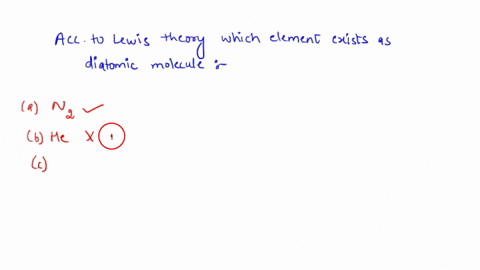 Acc. to Lewis theory which element exists as
diatomic molecule :-
(a) N2 ✓
(b) He X
(c)